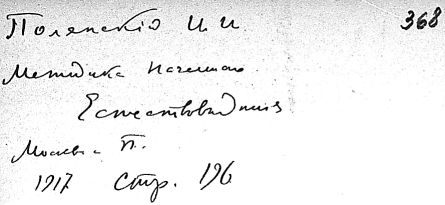 Полянскiй И. И. 368
Методика начальнаго
Естествовѣдѣнiя
Москва П.
1917 Стр. 196